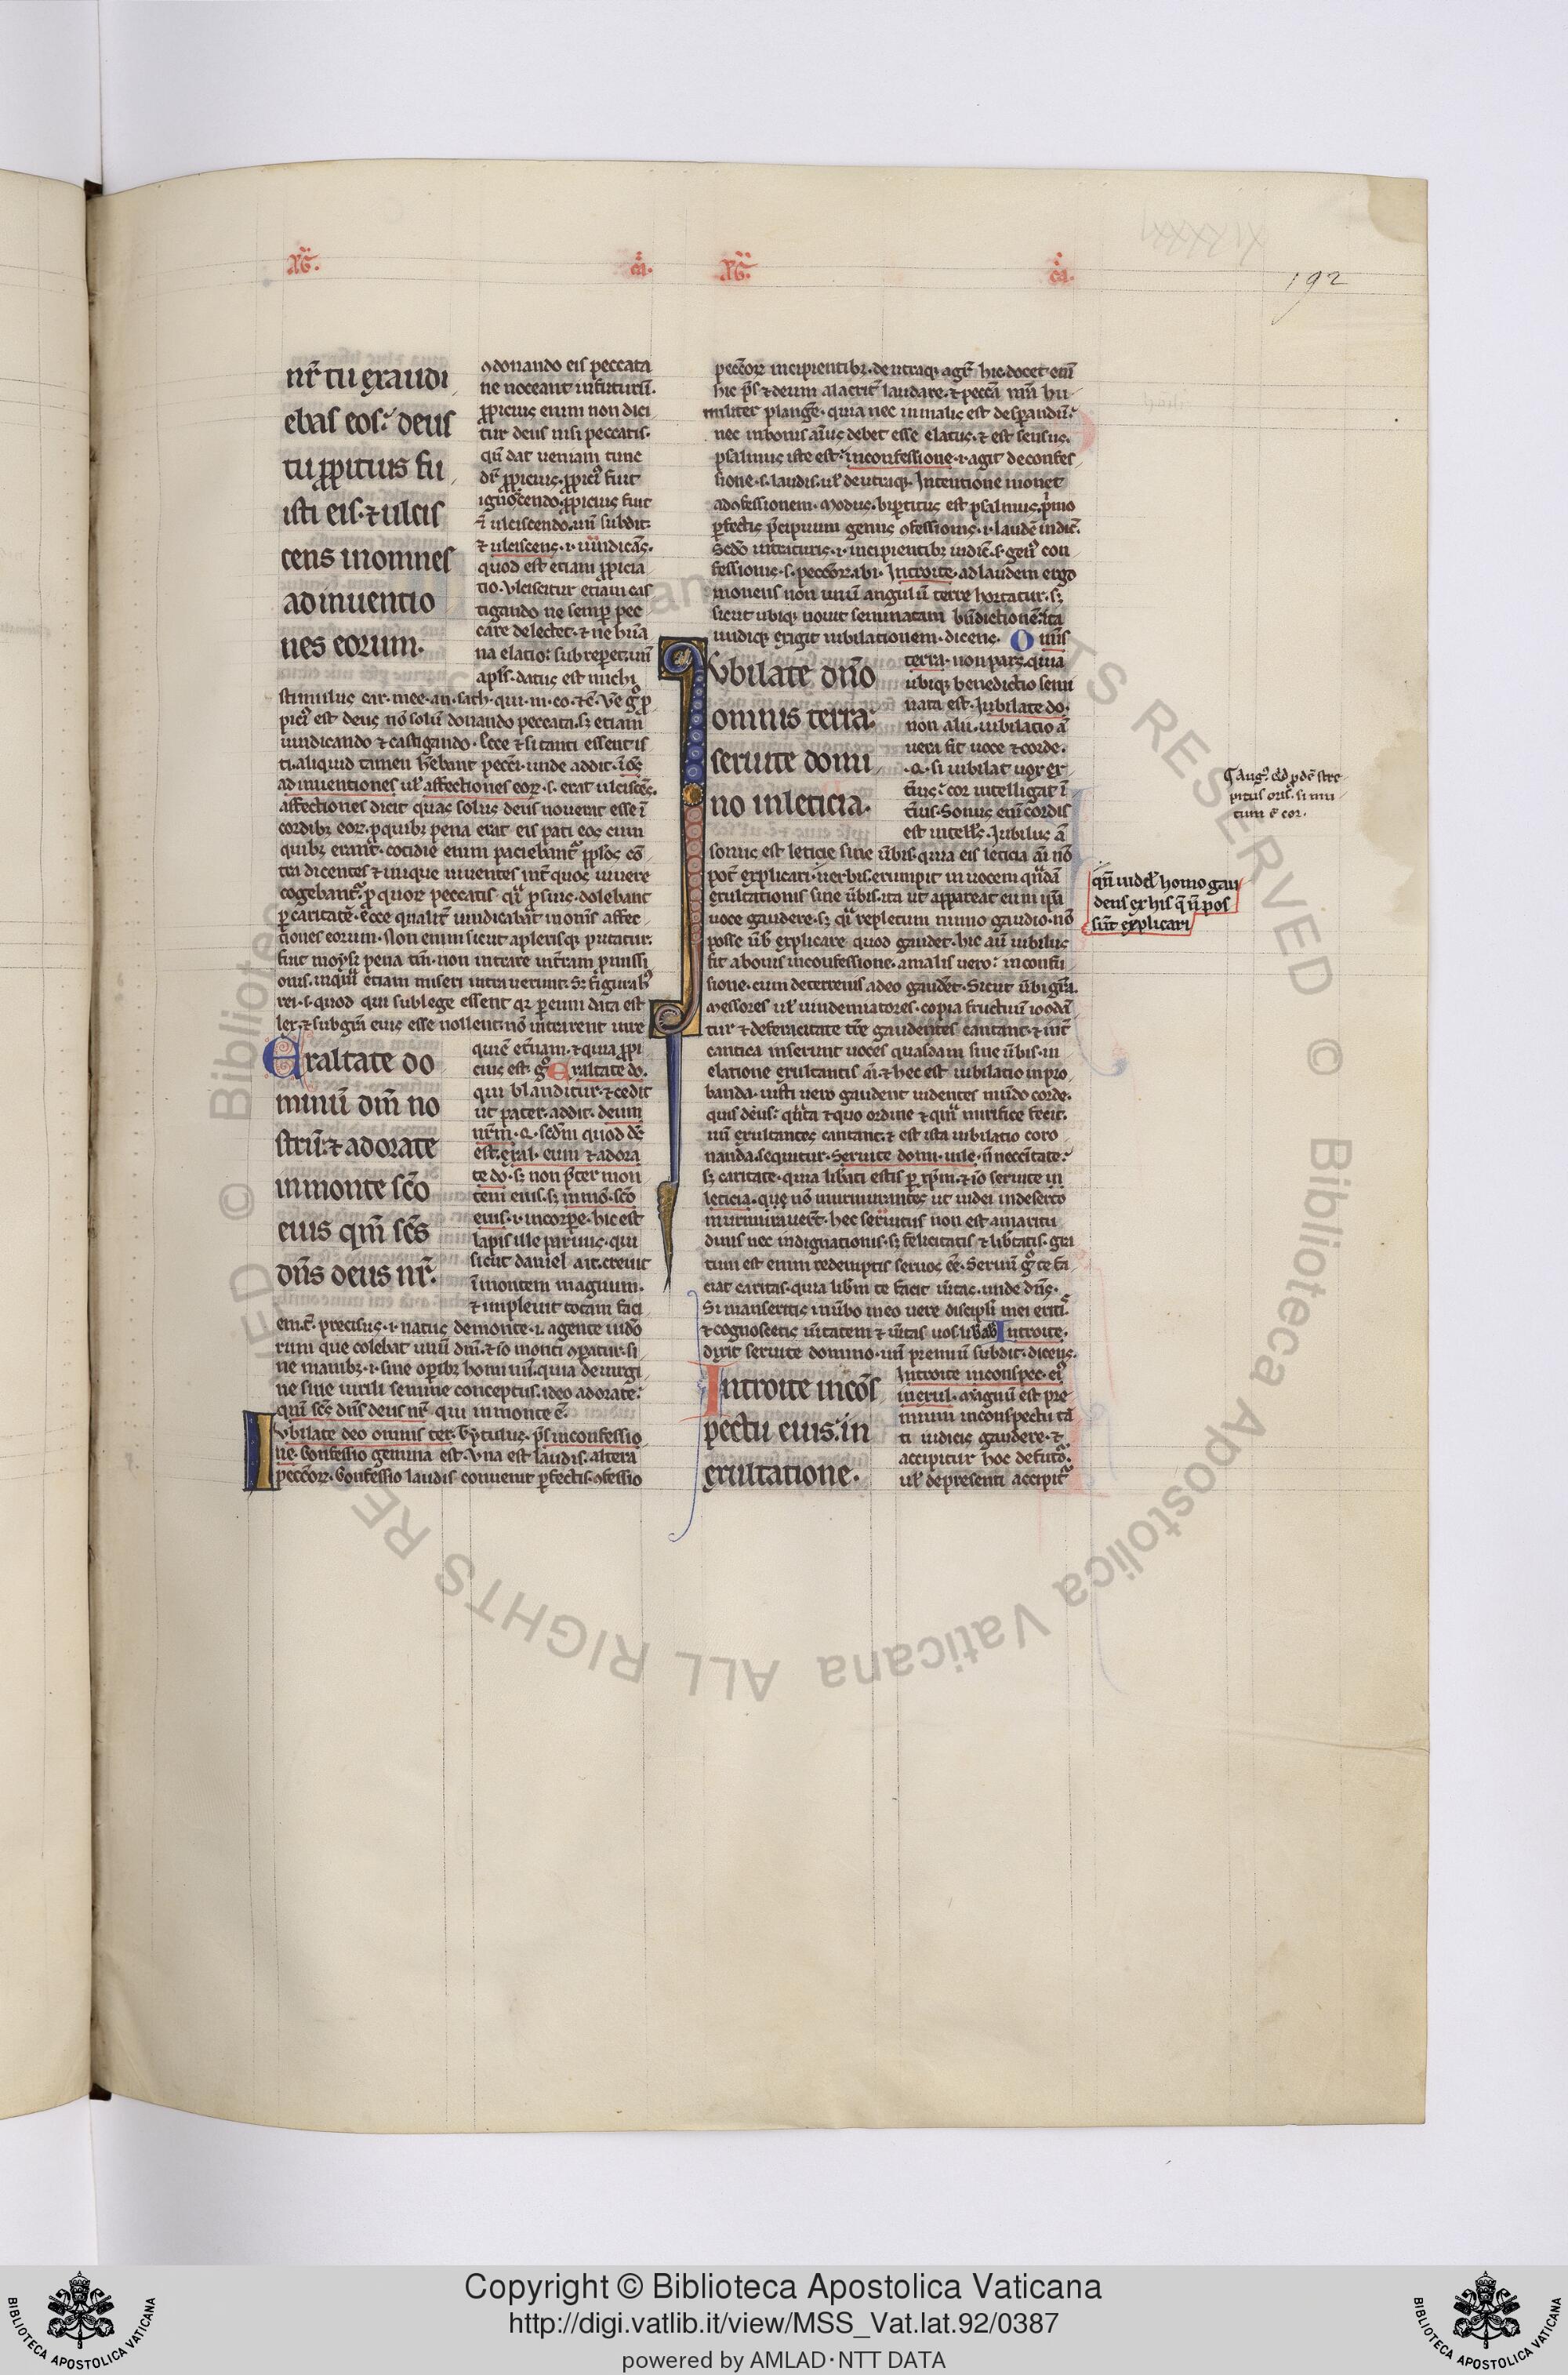 192
nr̄ tu exaudi
ebas eos: deus
tu ꝓpitius fu
isti eis. ⁊ ulcis
cens in omnes
adinuentio
nes eorum.
ꝯdonando eis peccata
ne noceant in futurū.
ꝓpicius enim non dici
tur deus nisi peccatis.
qn̄ dat ueniam tunc
ignoscendo. ꝓpicius fuit
⁊ ulciscens. i. uindicās.
quod est etiam ꝓpicia
tio. Vlciscitur etiam cas
tigando ne semꝑ pec
care delectet. ⁊ ne hūa
na elatio subreperet. un̄
apl̄s. datus est michi
stimulus car. mee. an. sath. qui. m. co. ⁊c̄.
pici᷒ est deus nō solū donando peccata. sꝫ etiam
uindicando ⁊ castigando. Ecce ⁊ si tanti essent is
ti. aliquid tamen hēbant peccī. unde addit. i ōēs
adinuentiones ul̄ affectiones eoꝝ. s. erat ulciscēs.
affectiones dicit quas solus deus nouerat esse ī
cordibꝫ eoꝝ. ꝓ quibꝫ pena erat eis pati eos cum
quibꝫ erant. cotidie enim paciebant᷑
tra dicentes ⁊ inique uiuentes int̄ quos uiuere
cogebant᷑. ꝓ quoꝝ peccatis
ꝑ caritatē. Ecce qualit̄ uindicabat in om̄s affec
tiones eorum. Non enim sicut a plerisqꝫ putatur.
fuit moysi pena tm̄. non intrare in t̄ram ꝓmissi
onis. in quā etiam miseri intrauerunt.
rei. s. quod qui sub lege essent qꝫ ꝑ eum data est
lex. ⁊ sub grā eius esse nollent. nō intrarent in re
Exaltate do
minū dm̄ no
strū. ⁊ adorate
in monte sc̄o
eius qm̄ sc̄s
dn̄s deus nr̄.
quiē et̄nam. ⁊ quia ꝓpi
cius est. gͦ Exaltate do.
qui blanditur. ⁊ cedit
ut pater. addit. deum
nr̄m.
est. exal. eum ⁊ adora
te do. sꝫ non p̄ter mon
tem eius. sꝫ in mō. sc̄o
eius. i. in corpe. hic est
lapis ille paruus. qui
sicut daniel ait. creuit
ī montem magnum.
⁊ impleuit totam faci
em t̄. precisus. i. natus de monte. i. a gente iudō
rum que colebat unū dm̄. ⁊ iō monti cōparatur. si
ne manibꝫ. i. sine oꝑibꝫ hominū. quia de uirgi
ne sine uirili semine conceptus. ideo adorate.
qm̄ sc̄s dn̄s deus nr̄ qui in monte ē.
Iubilate deo omnis ter. Tytulus. ps̄ in confessio
ne. Confessio gemina est. Vna est laudis. altera
peccōꝝ. Confessio laudis conuenit ꝑfectis. ꝯfessio
peccōꝝ incipientibꝫ. de utraqꝫ agit̄ hic. docet enī
hic ps̄ ⁊ deum alacrit̄ laudare. ⁊ peccā nr̄a hu
militer plangē. quia nec in malis est despandū:
nec in bonis ait̄us debet esse elatus. ⁊ est sensus.
psalmus iste est in confessione. i. agit de confes
sione. s. laudis. ul̄ de utraqꝫ. Intentione monet
ad ꝯfessionem. Modus. bipartitus est psalmus. p̄mo
ꝑfectis p̄cipuum genus ꝯfessionis. i. laudē indic̄.
Secdō intraturis. i. incipientibꝫ indic̄. s. gen᷒ con
fessionis. s. peccōꝝ. ibi. Introite. ad laudem ergo
mouens non unū angulū terre hortatur. sꝫ
sicut ubiqꝫ nouit seminatam bn̄dictionē. ita
undiqꝫ exigit iubilationem. dicens. Om̄is
Iubilate dn̄o
omnis terra:
seruite domi
no in leticia.
terra. non pars. quia
ubiqꝫ benedictio semi
nata est. Jubilate do.
non alii. iubilatio ā
uera fit uoce ⁊ corde.
.q. si iubilat uox ex
t̄ius: cor intelligat ī
t̄ius. Sonus enī cordis
est intell̄s. Jubilus ā
sonus est leticie sine ūbis. quia eis leticia ai nō
pot̄ explicari. uerbis. erumpit in uocem quādā
exultationis sine ūbis. ita ut appareat eum ip̄a
uoce gaudere. sꝫ qi repletum nimio gaudio. nō
posse ūb explicare quod gaudet. hic aū iubilus
fit a bonis in confessione. a malis uero: in confu
sione. cum deterrenis adeo gaudet. Sicut ūbi grā.
Messores ul̄ uindemiatores. copia fructuū iocūdā
tur ⁊ de feracitate t̄re gaudentes cantant. ⁊ int̄
cantica inserunt uoces quasdam sine ūbis. in
elatione exultantis ai. ⁊ hec est iubilatio inpro
banda. iusti uero gaudent uidentes mūdo corde.
quis deus. qn̄ta ⁊ quo ordine ⁊ qm̄ mirifice fecit.
un̄ exultantes cantant. ⁊ est ista iubilatio coro
nanda. sequitur. Seruite domi. in le. n̄ neccītate:
sꝫ caritate. quia lib̄ati estis ꝑ xp̄m. ⁊ iō seruite in
leticia. que nō murmurantes ut iudei in deserto
murmurauert̄. hec seruitus non est amaritu
dinis nec indignationis. sꝫ felicitatis ⁊ lib̄tatis. gra
tum est enim redemptis seruos eē. Seruū gͦ te fa
ciat caritas. quia lib̄m te facit ūitas. unde dn̄s.
Si manseritis in ūbo meo uere discipli mei eritis.
⁊ cognoscetis ūitatem ⁊ ūitas uos lib̄ab Introite.
dixit seruite domino. un̄ premiū subdit. dicens.
Introite in cōs
pectu eius: in
exultatione.
Introite in conspec. ei᷒
in exul. Magnū est pre
mium in conspectu tā
ti iudicis gaudere. ⁊
accipitur hoc de futō.
ul̄ de presenti accipit᷑
Aug᷒. Qd ꝓdē stre
pitus oris. si mu
tum ē cor.
qn̄ uidet᷑ homo gau
dens ex his q̄ n̄ pos
sūt explicari
Copyright © Biblioteca Apostolica Vaticana
http://digi.vatlib.it/view/MSS_Vat.lat.92/0387
powered by AMLAD·NTT DATA
BIBLIOTECA APOSTOLICA VATICANA
BIBLIOTECA APOSTOLICA VATICANA
© Biblioteca Apostolica Vaticana ALL RIGHTS RESERVED